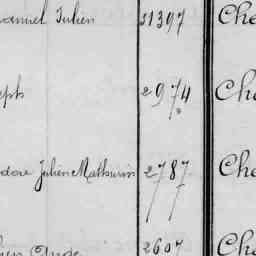 Julien 31397 Che
eph 2974 Che
dore Julien Mathurin 2787 Che
2607 Che